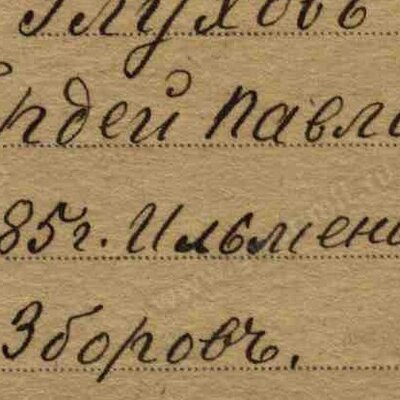 Глуховъ
рдей Павл
85г. Ильмен
Зборовъ.